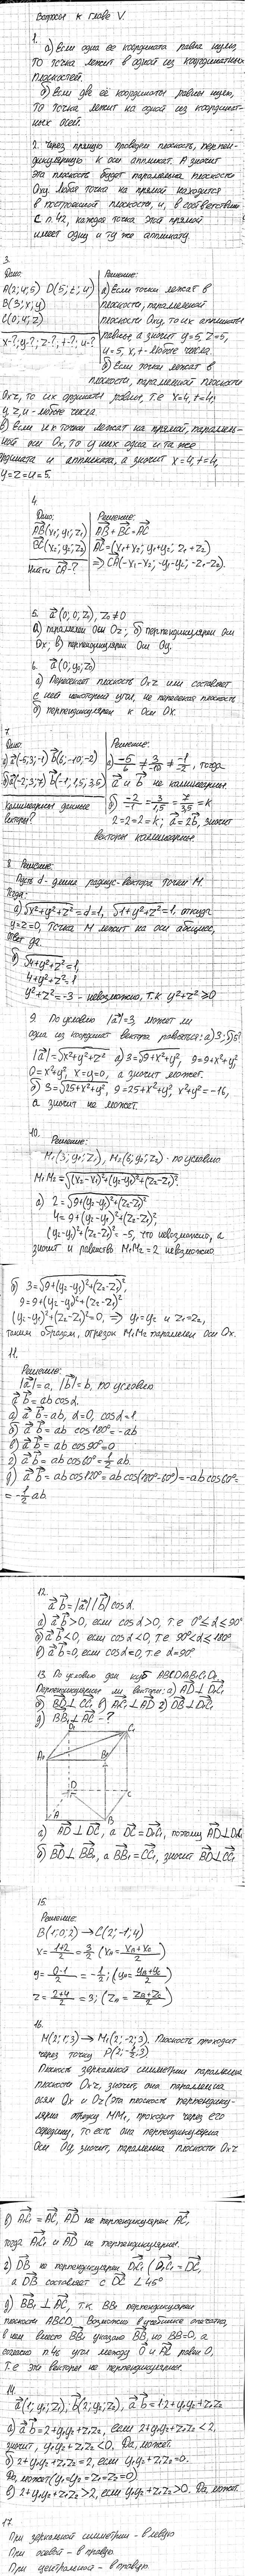 Вопросы к главе V.
1.
а) Если одна ее координата равна нулю,
то точка лежит в одной из координатных
плоскостей.
б) Если две её координаты равны нулю,
то точка лежит на одной из координат-
ных осей.
2. Через прямую проведем плоскость, перпен-
дикулярную к оси аппликат. А значит
эта плоскость будет параллельна плоскости
Oxy. Любая точка на прямой находится
в построенной плоскости, и, в соответствии
с п.42, каждая точка этой прямой
имеет одну и ту же аппликату.
3.
Дано: Решение:
A(2;4;5) D(5;t;u) а) Если точки лежат в
B(3;x;y) плоскости, параллельной
C(0;4;z) плоскости Oxy, то их аппликаты
x-?, y-?, z-?, t-?, u-? равны, а значит y=5, z=5,
u=5, x, t - любые числа.
б) Если точки лежат в
плоскости, параллельной плоскости
Oxz, то их ординаты равны, т.е x=4, t=4;
y, z, u - любые числа.
в) если их точки лежат на прямой, параллель-
ной оси Ox, то у них одна и та же
ордината и аппликата, а значит x=4, t=4,
y=z=u=5.
4.
Дано: Решение:
AB{x₁;y₁;z₁} AB+BC=AC
BC{x₂;y₂;z₂} AC={x₁+x₂; y₁+y₂; z₁+z₂}
Найти CA-? ⇒ CA{-x₁-x₂; -y₁-y₂; -z₁-z₂}.
5. a{0;0;z}, z₀≠0
а) параллелен оси Oz; б) перпендикулярен оси
Ox, в) перпендикулярен оси Oy.
6. a{0;y₀;z₀}
а) Пересекает плоскость Oxz или составляет
с ней некоторый угол, не пересекая плоскость
б) перпендикулярен к оси Ox.
7.
Дано: Решение:
а) a{-5;3;-1} b{6;-10;-2} а) -5/6 ≠ 3/-10 ≠ -1/-2, тогда
б) a{-2;3;7} b{-1;1,5;3,5} a и b не коллинеарны.
Коллинеарны данные б) -2/-1 = 3/1,5 = 7/3,5 = k
векторы? 2=2=2=k; a=2b, значит
векторы коллинеарны.
8. Решение:
Пусть d - длина радиус-вектора точки M.
Тогда:
а) √x²+y²+z² = d = 1, √1+y²+z² = 1, откуда
y=z=0, точка M лежит на оси абсцисс,
ответ да.
б) √4+y²+z² = 1,
4+y²+z²=1
y²+z²=-3 - невозможно, т.к y²+z²≥0
9. По условию |a|=3, может ли
одна из координат вектора равняться: а) 3; б) 5?
|a|=√x²+y²+z² а) 3=√9+x²+y², 9=9+x²+y²,
0=x²+y², x=y=0, а значит может.
б) 3=√25+x²+y², 9=25+x²+y², x²+y²=-16,
а значит не может.
10.
Решение:
M₁(3;y₁;z₁), M₂(6;y₂;z₂) - по условию
M₁M₂=√(x₂-x₁)²+(y₂-y₁)²+(z₂-z₁)².
а) 2=√9+(y₂-y₁)²+(z₂-z₁)²
4=9+(y₂-y₁)²+(z₂-z₁)²,
(y₂-y₁)²+(z₂-z₁)²=-5, что невозможно, а
значит и равенство M₁M₂=2 невозможно.
б) 3=√9+(y₂-y₁)²+(z₂-z₁)²,
9=9+(y₂-y₁)²+(z₂-z₁)²
(y₂-y₁)²+(z₂-z₁)²=0, ⇒ y₁=y₂ и z₁=z₂,
таким образом, отрезок M₁M₂ параллелен оси Ox.
11.
Решение:
|a|=a, |b|=b, по условию
a b = ab cosα.
а) a b = ab, α=0, cosα=1
б) a b = ab cos180°=-ab
в) a b = ab cos90°=0
г) a b = ab cos60°=1/2 ab.
д) a b = ab cos120°=ab cos(180°-60°)=-ab cos60°=
=-1/2 ab.
12.
a b = |a| |b| cosα.
а) a b>0, если cosα>0, т.е 0°≤α≤90°
б) a b<0, если cosα<0, т.е 90°<α≤180°
в) a b=0, если cosα=0, т.е α=90°
13. По условию дан куб ABCDA₁B₁C₁D₁.
Перпендикулярны ли векторы: а) AD⊥D₁C₁
б) BD⊥CC₁ в) A₁C₁⊥AD г) DB⊥D₁C₁
д) BB₁⊥AC - ?
D₁ C₁
A₁ B₁
D C
A B
а) AD⊥DC, а DC=D₁C₁, потому AD⊥D₁C₁
б) BD⊥BB₁, а BB₁=CC₁, значит BD⊥CC₁
15.
Решение:
B(1;0;2) → C(2;-1;4)
x=1+2/2=3/2 (xₙ=xₙ+x₀/2)
y=0-1/2=-1/2; (y₀=yₙ+y₀/2)
z=2+4/2=3; (zₙ=zₙ+z₀/2)
16.
M(2;1;3) → M₁(2;-2;3). Плоскость проходит
через точку P(2;-1/2;3)
Плоскость зеркальной симметрии параллельна
плоскости Oxz, значит, она параллельна
осям Ox и Oz (эта плоскость перпендику-
лярна отрезку MM₁, проходит через его
середину, то есть она перпендикулярна
оси Oy, значит, параллельна плоскости Oxz
в) A₁C₁=AC, AD не перпендикулярен AC,
тогда A₁C₁ и AD не перпендикулярны.
г) DB не перпендикулярен D₁C₁ (D₁C₁=DC,
а DB составляет с DC ∠45°
д) BB₁⊥AC, т.к BB₁ перпендикулярен
плоскости ABCD. Возможно в учебнике опечатка,
в нем вместо BB₁ указано BB, но BB=0, а
согласно п46 угол между 0 и AC равен 0,
т.е эти векторы не перпендикулярны.
14.
a{1;y₁;z₁}, b{2;y₂;z₂}, a b=1·2+y₁y₂+z₁z₂
а) a b=2+y₁y₂+z₁z₂, если 2+y₁y₂+z₁z₂<2,
значит, y₁y₂+z₁z₂<0. Да, может.
б) 2+y₁y₂+z₁z₂=2, если y₁y₂+z₁z₂=0.
Да, может (y₁=y₂=z₁=z₂=0)
в) 2+y₁y₂+z₁z₂>2, если y₁y₂+z₁z₂>0. Да, может.
17.
При зеркальной симметрии - в левую
При осевой - в правую
При центральной - в правую.